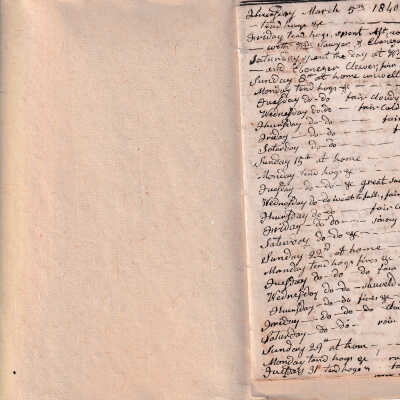 Thursday March 5th 1840
tend hogs &c
Friday tend hogs, spent
with Mr Sawyer & Ebenezer
Saturday spent the day at
and Ebenezer
Sunday 8th at home unwell
Monday tend hogs &c
Tuesday do-do fair cloudy
Wednesday do do - fair - cold
Thursday do - do fair
Friday - do-do
Saturday do-do
Sunday 15th at home
Monday tend hogs &
Tuesday do-do & great
Wednesday do-do went to fair
Thursday do-do fair
Friday do-do
Saturday do-do &c
Sunday 22nd at home
Monday tend hogs fires &
Tuesday do-do do fair
Wednesday do do
Thursday do-do fires &c
Friday do-do-do
Saturday do-do- rain
Sunday 29th at home
Monday tend hogs &c
Tuesday 31st tend hogs